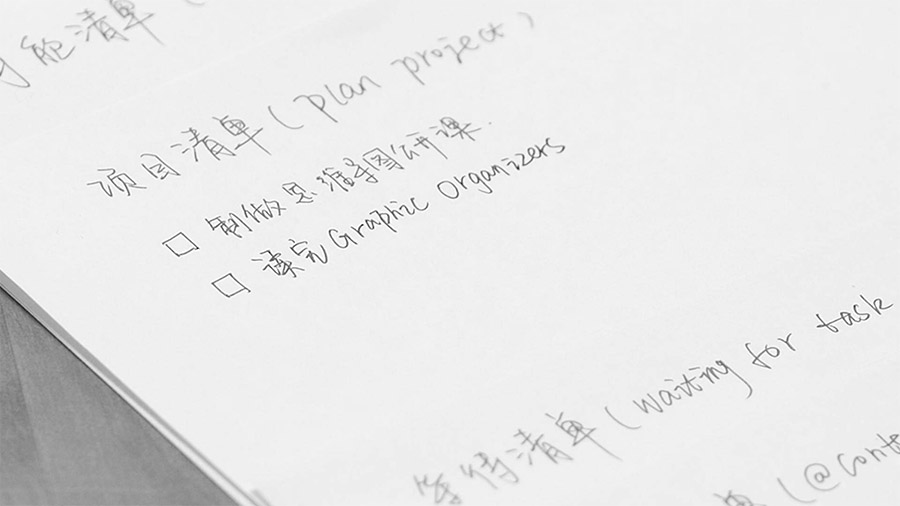 能清单（
项目清单（plan project）
□ 制做思维导图公开课.
□ 读完Graphic Organizers
等待清单（waiting for task
单（@conte